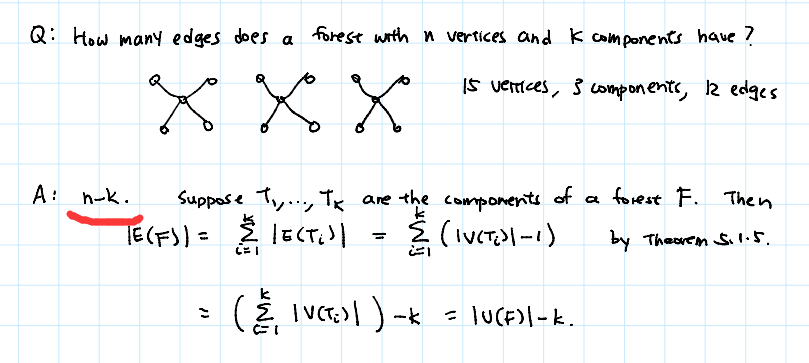 Q: How many edges does a forest with n vertices and k components have?
15 vertices, 3 components, 12 edges
A: n-k. Suppose T₁,..., Tₖ are the components of a forest F. Then
|E(F)| = ∑ᵢ₌₁ᵏ |E(Tᵢ)| = ∑ᵢ₌₁ᵏ (|V(Tᵢ)|-1) by Theorem 5.1.5.
= (∑ᵢ₌₁ᵏ |V(Tᵢ)|) -k = |V(F)|-k.